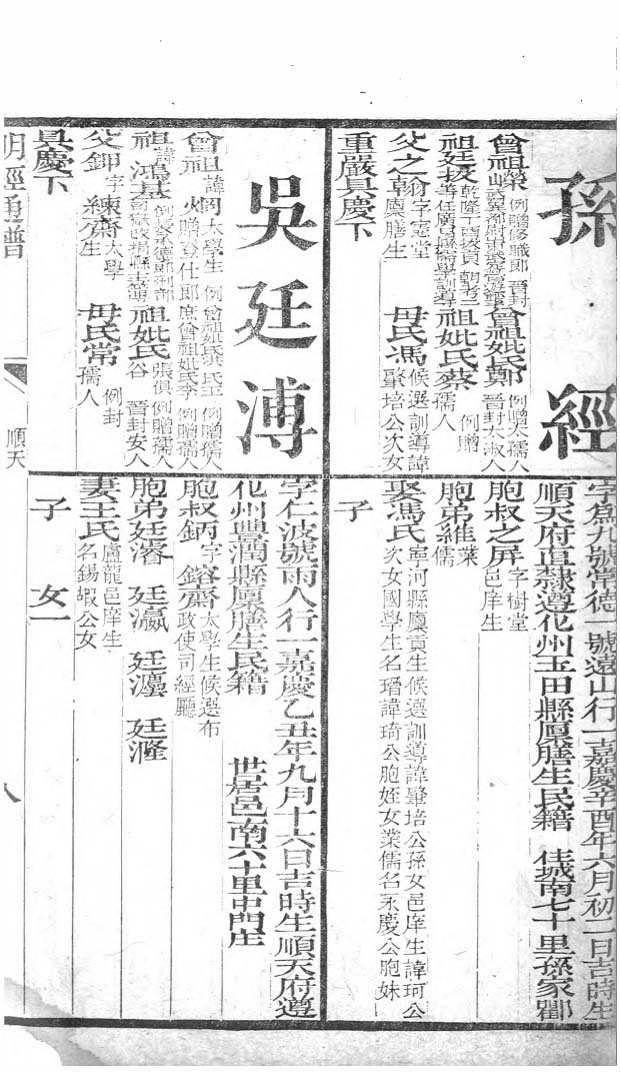 孫經
曾祖榮 例贈修職郎 晉封 曾祖妣氏鄭 例贈太孺人 晉封太淑人
祖廷掞 乾隆丁酉拔貢 朝考二等任 縣儒學訓導 祖妣氏蔡 例贈孺人
父之翰 字憲堂 廩膳生 母氏馮 候選訓導諱肇培公次女
重嚴具慶下
字爲九號常德一號遠山行一嘉慶辛酉年六月初一日吉時生
順天府直隸遵化州玉田縣廩膳生民籍 住城南七十里孫家
胞叔之屏 字樹堂 邑庠生
胞弟維 業儒
娶馮氏 寧河縣廩貢生候選訓導諱肇培公孫女邑庠生諱珂公次女國學生名瑨諱琦公胞姪女業儒名永慶公胞妹
子
吳廷溥
曾祖 諱炯 太學生 例贈登仕郎 曾祖妣氏 王 例贈孺人 庶曾祖妣氏李 例贈孺人
祖 諱鴻基 祖妣氏 張 俱例贈孺人 谷 晉封安人
父鉀 字練齋 太學生 母氏常 例封孺人
具慶下
字仁波號雨人行一嘉慶乙丑年九月十六日吉時生順天府遵
化州豐潤縣廩膳生民籍 世居邑南六十里屯門庄
胞叔鈵 字鎔齋 太學生候選布政使司經廳
胞弟廷濬 廷瀛 廷瀍 廷漋
妻王氏 盧龍邑庠生名錫嘏公女
子 女一
明經通譜
順天
八